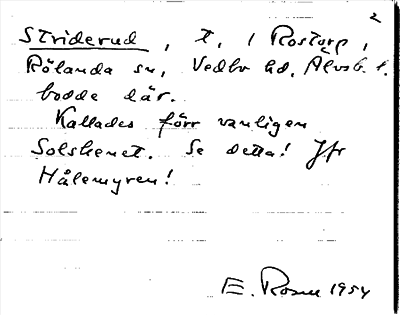 2
Striderud, t, i Rostorp,
Rölanda sn, Vedbo hd, Älvsb. l.
bodde där.
Kallades förr vanligen
Solskenet. Se detta! Jfr
Hålemyren!
E. Rosell 1954